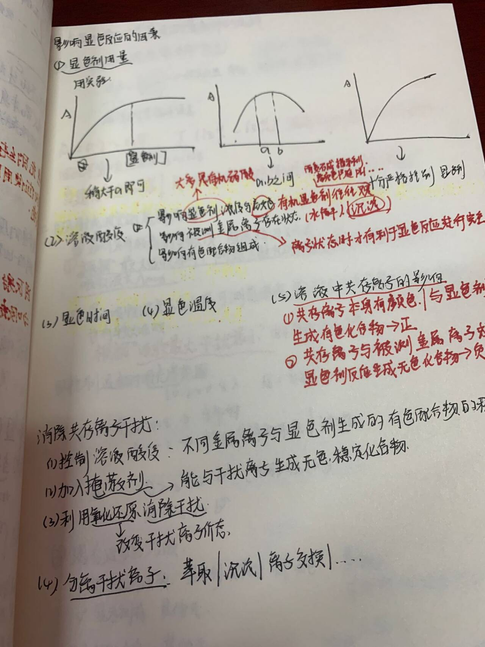 影响显色反应的因素
(1) 显色剂用量
用实验
A
A
A
[显色剂]
a b
稍大于a即可
大多是有机弱酸
a,b之间
(2) 溶液酸度
影响有机显色剂
影响被测金属离子存在状态 (水解) (沉淀)
影响有色配合物组成.
离子状态时才有利于显色反应进行
(3) 显色时间
(4) 显色温度
(5) 溶液中共存离子的影响
① 共存离子本身有颜色. | 与显色剂
生成有色化合物→正.
② 共存离子与被测金属离子或
显色剂反应生成无色化合物→负
消除共存离子干扰:
(1) 控制溶液酸度: 不同金属离子与显色剂生成的有色配合物的
(2) 加入掩蔽剂. → 能与干扰离子生成无色.稳定化合物.
(3) 利用氧化还原.消除干扰.
改变干扰离子价态.
(4) 分离干扰离子: 萃取|沉淀|离子交换|.....